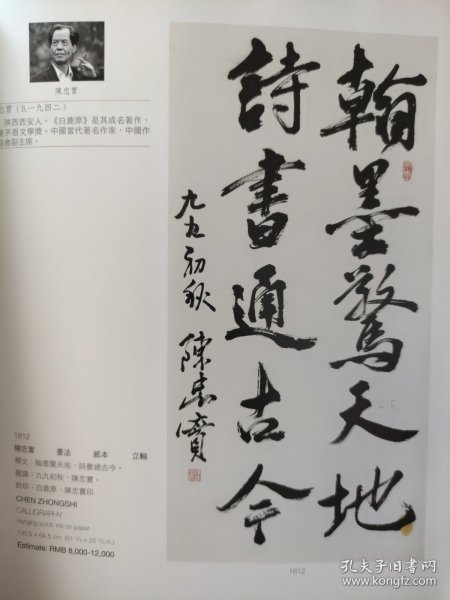 陳忠實
忠實(B.一九四二)
陝西西安人。《白鹿原》是其成名著作,
獲茅盾文學獎。中國當代著名作家,中國作
協會副主席。
翰墨驚天地
詩書通古今
九九初秋 陳忠實
1812
陳忠實 書法 紙本 立軸
釋文:翰墨驚天地,詩書通古今。
題識:九九初秋,陳忠實。
鈐印:白鹿原、陳忠實印
CHEN ZHONGSHI
CALLIGRAPHY
Hanging scroll, ink on paper
Estimate: RMB 8,000-12,000
1812
孔夫子旧书网
www.kongfz.com